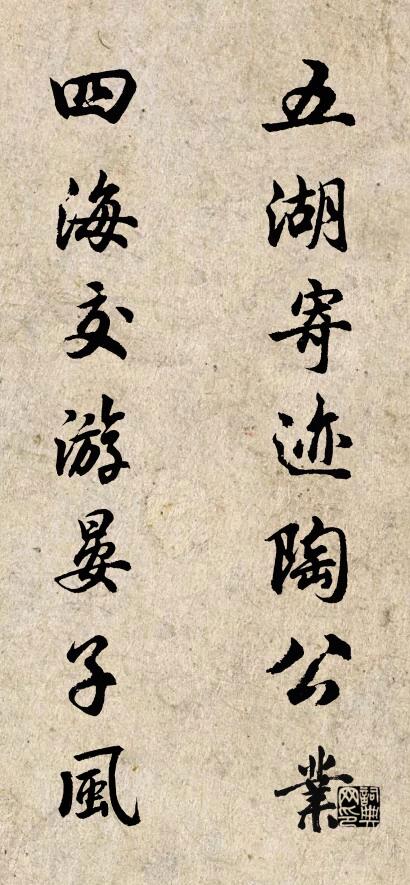 五湖寄迹陶公業
四海交游晏子風
詞典网印